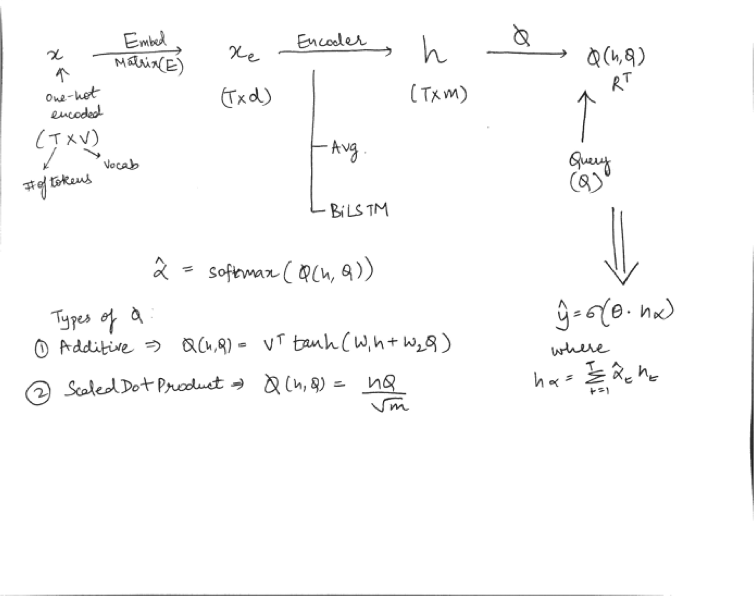 x Embed Matrix(E) xₑ Encoder h Q Q(h,Q)
Rᵀ
one-hot
encoded
(TxV)
# of tokens
Vocab
(Txd)
Avg.
BiLSTM
(Txm)
Query
(Q)
α̂ = softmax(Q(h, Q))
Types of Q:
① Additive ⇒ Q(h,Q) = Vᵀ tanh(W₁h + W₂Q)
② Scaled Dot Product ⇒ Q(h,Q) = hQ / √m
ŷ = σ(θ · hα)
where
hα = Σ_{t=1}^{T} α̂ₜ hₜ